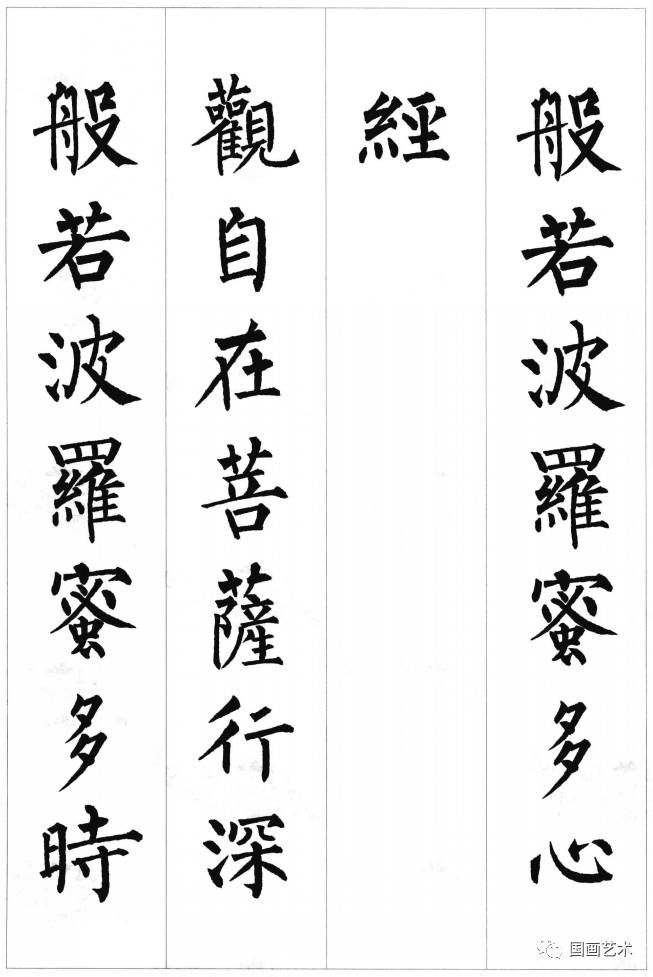 般若波羅蜜多心
經
觀自在菩薩行深
般若波羅蜜多時
国画艺术